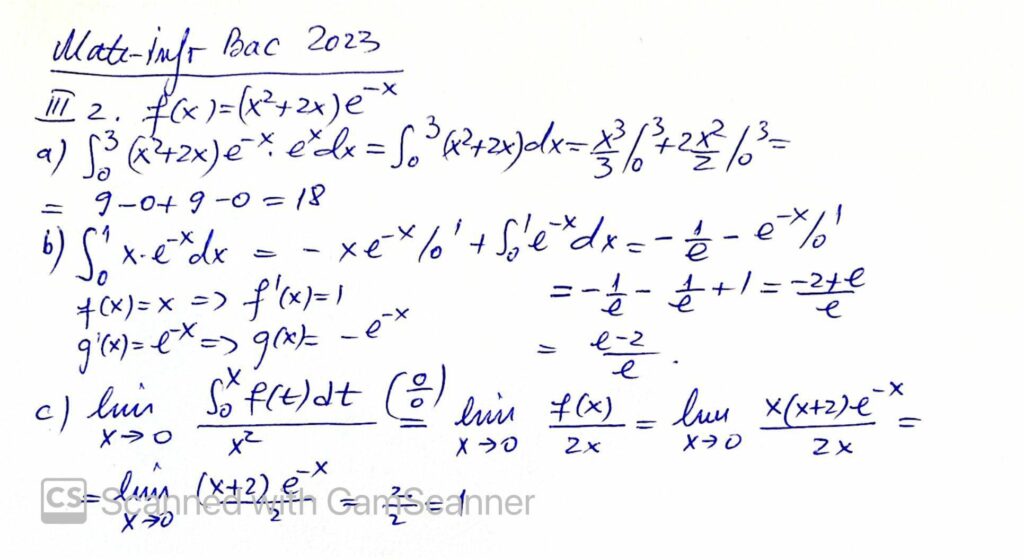 Mate-infr Bac 2023
III 2. f(x)=(x²+2x)e⁻ˣ
a) ∫₀³ (x²+2x)e⁻ˣ·eˣdx = ∫₀³(x²+2x)dx = x³/3 /₀³ + 2x²/2 /₀³ =
= 9-0+9-0 = 18
b) ∫₀¹ x·e⁻ˣdx = -xe⁻ˣ/₀¹ + ∫₀¹e⁻ˣdx = -1/e - e⁻ˣ/₀¹
f(x)=x => f'(x)=1 = -1/e - 1/e + 1 = -2+e/e
g'(x)=e⁻ˣ => g(x)= -e⁻ˣ = e-2/e .
c) lim x→0 ∫₀ˣ f(t)dt / x² (0/0) = lim x→0 f(x)/2x = lim x→0 x(x+2)·e⁻ˣ/2x =
= lim x→0 (x+2)e⁻ˣ/2 = 2/2 = 1
CS Scanned with CamScanner